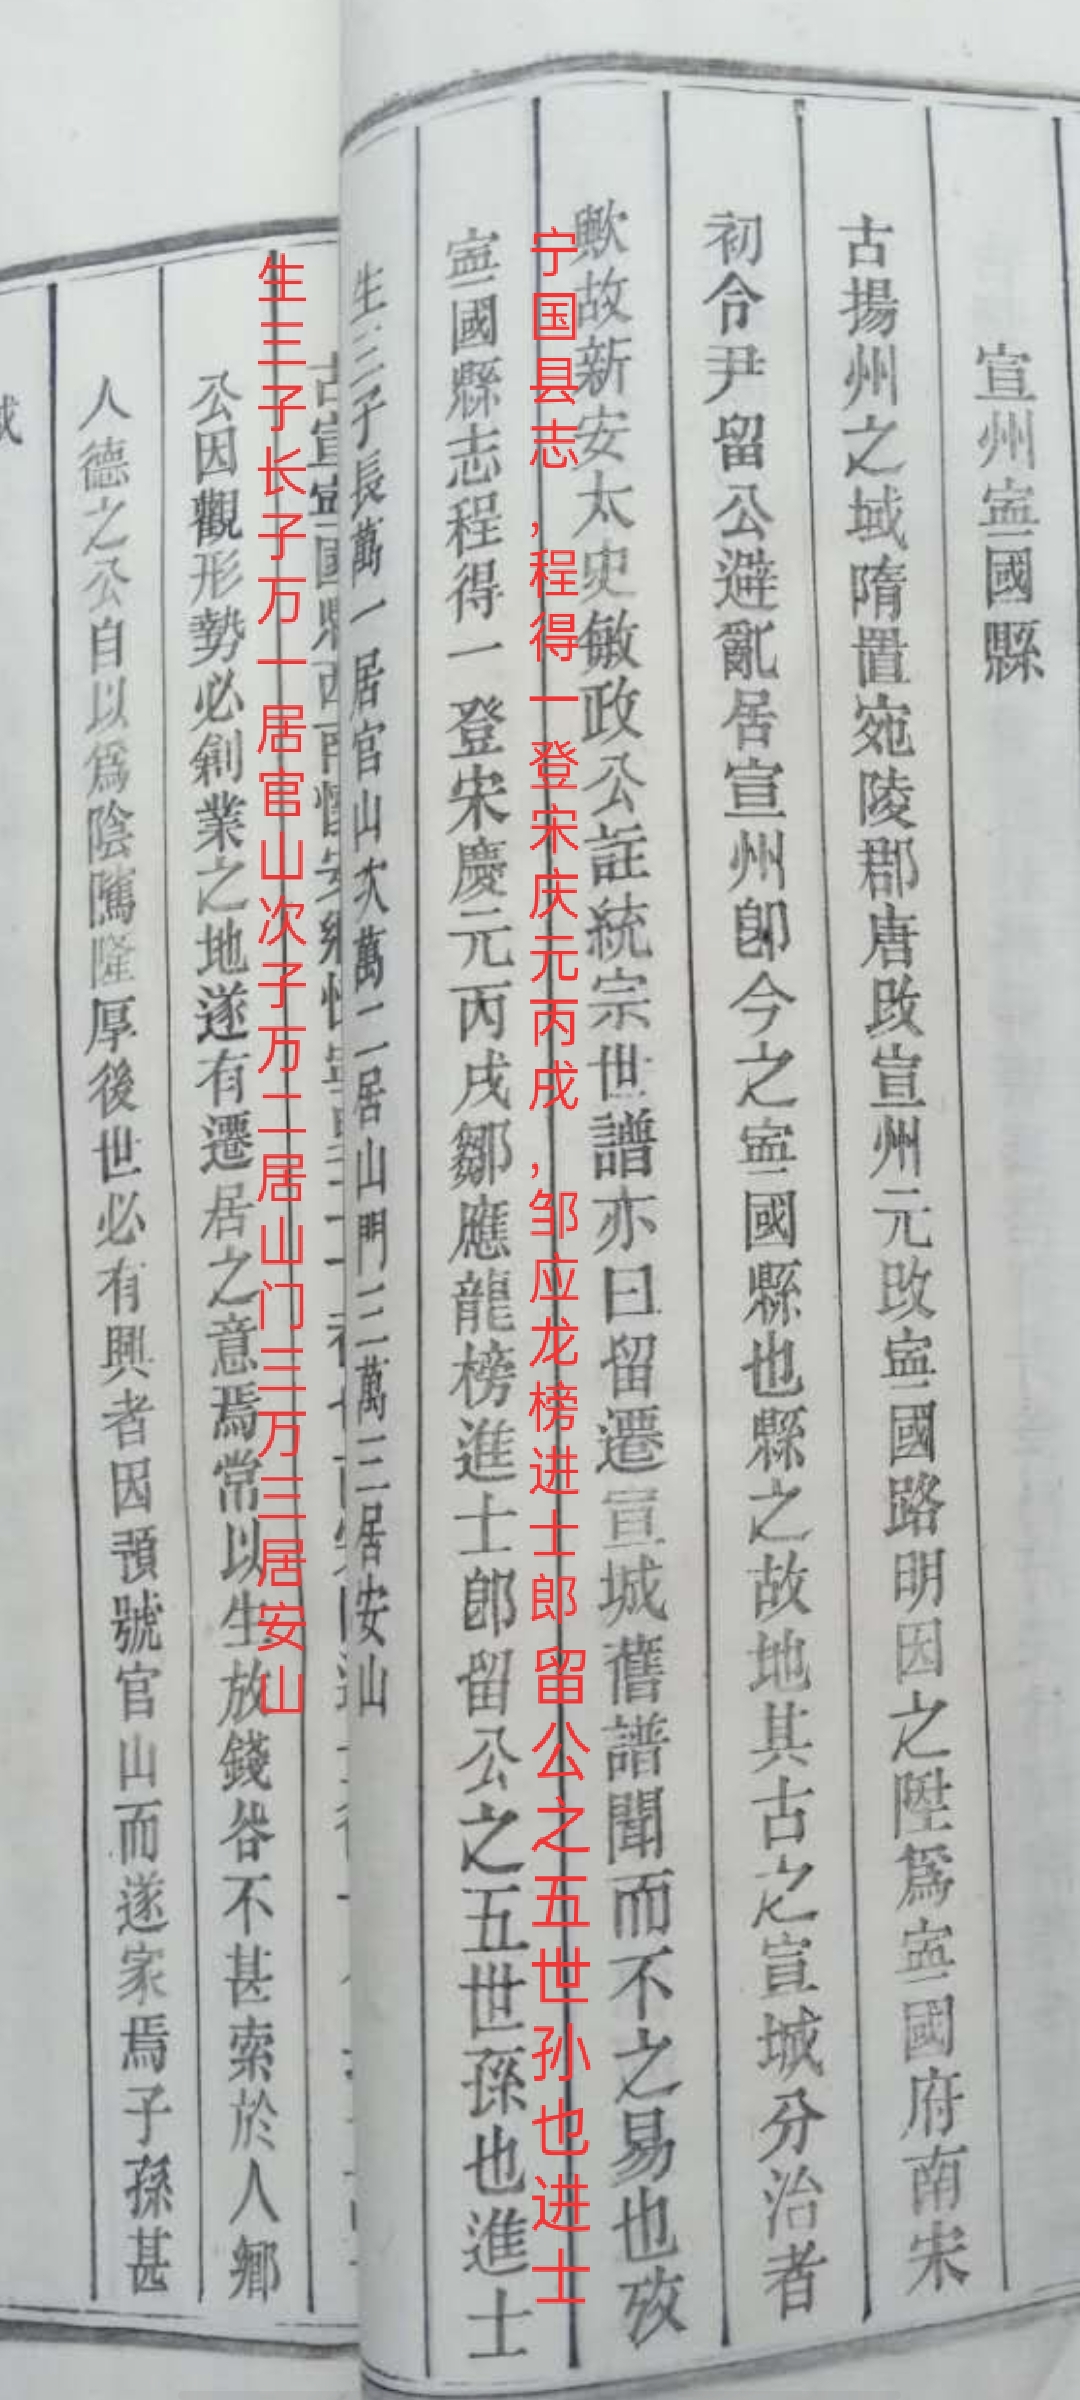 宣州寍國縣
古揚州之域隋置宛陵郡唐改宣州元改寍國路明因之陞爲寍國府南宋
初令尹留公避亂居宣州卽今之寍國縣也縣之故地其古之宣城分治者
歟故新安太史敏政公註統宗世譜亦曰留遷宣城舊譜聞而不之易也攷
宁国县志,程得一登宋庆元丙戌,邹应龙榜进士郎留公之五世孙也进士
寍國縣志程得一登宋慶元丙戌鄒應龍榜進士郎留公之五世孫也進士
生三子長萬一居官山次萬二居山門三萬三居安山
生三子长子万一居官山次子万二居山门三万三居安山
公因觀形勢必創業之地遂有遷居之意焉常以生放錢谷不甚索於人鄉
人德之公自以爲陰隲隆厚後世必有興者因預號官山而遂家焉子孫甚